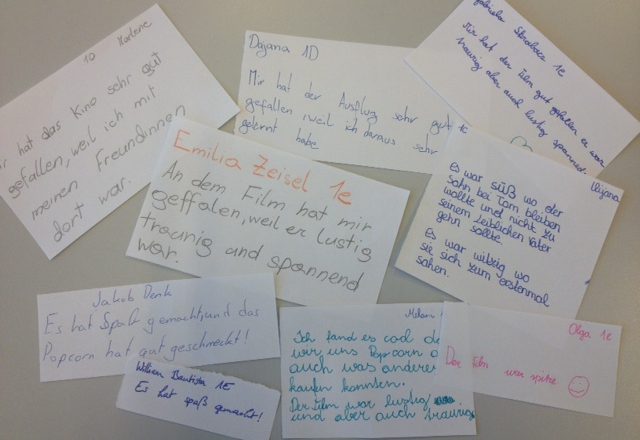 1D Marlene
hat das Kino sehr gut
gefallen, weil ich mit
meinen Freundinnen
dort war.
Dajana 1D
Mir hat der Ausflug sehr gut
gefallen, weil ich daraus sehr
gelernt habe
1e
Mir hat der Film gut gefallen er war
traurig aber auch lustig spannend.
Emilia Zeisel 1e
An dem Film hat mir
geffalen, weil er lustig
traurig und spannend
war.
Es war süß wo der
Sohn bei Tom bleiben
wollte und nicht zu
seinem leiblichen Vater
gehn sollte.
Es war witzig wo
sie sich zum erstenmal
sahen.
Jakob Denk
Es hat Spaß gemacht, und das
Popcorn hat gut geschmeckt!
William Bautista 1E
Es hat spaß gemacht!
Ich fand es cool
wir uns Popcorn
auch was andere
kaufen konnten.
Der Film war lustig
und aber auch traurig
Olga 1e
Der Film war spitze